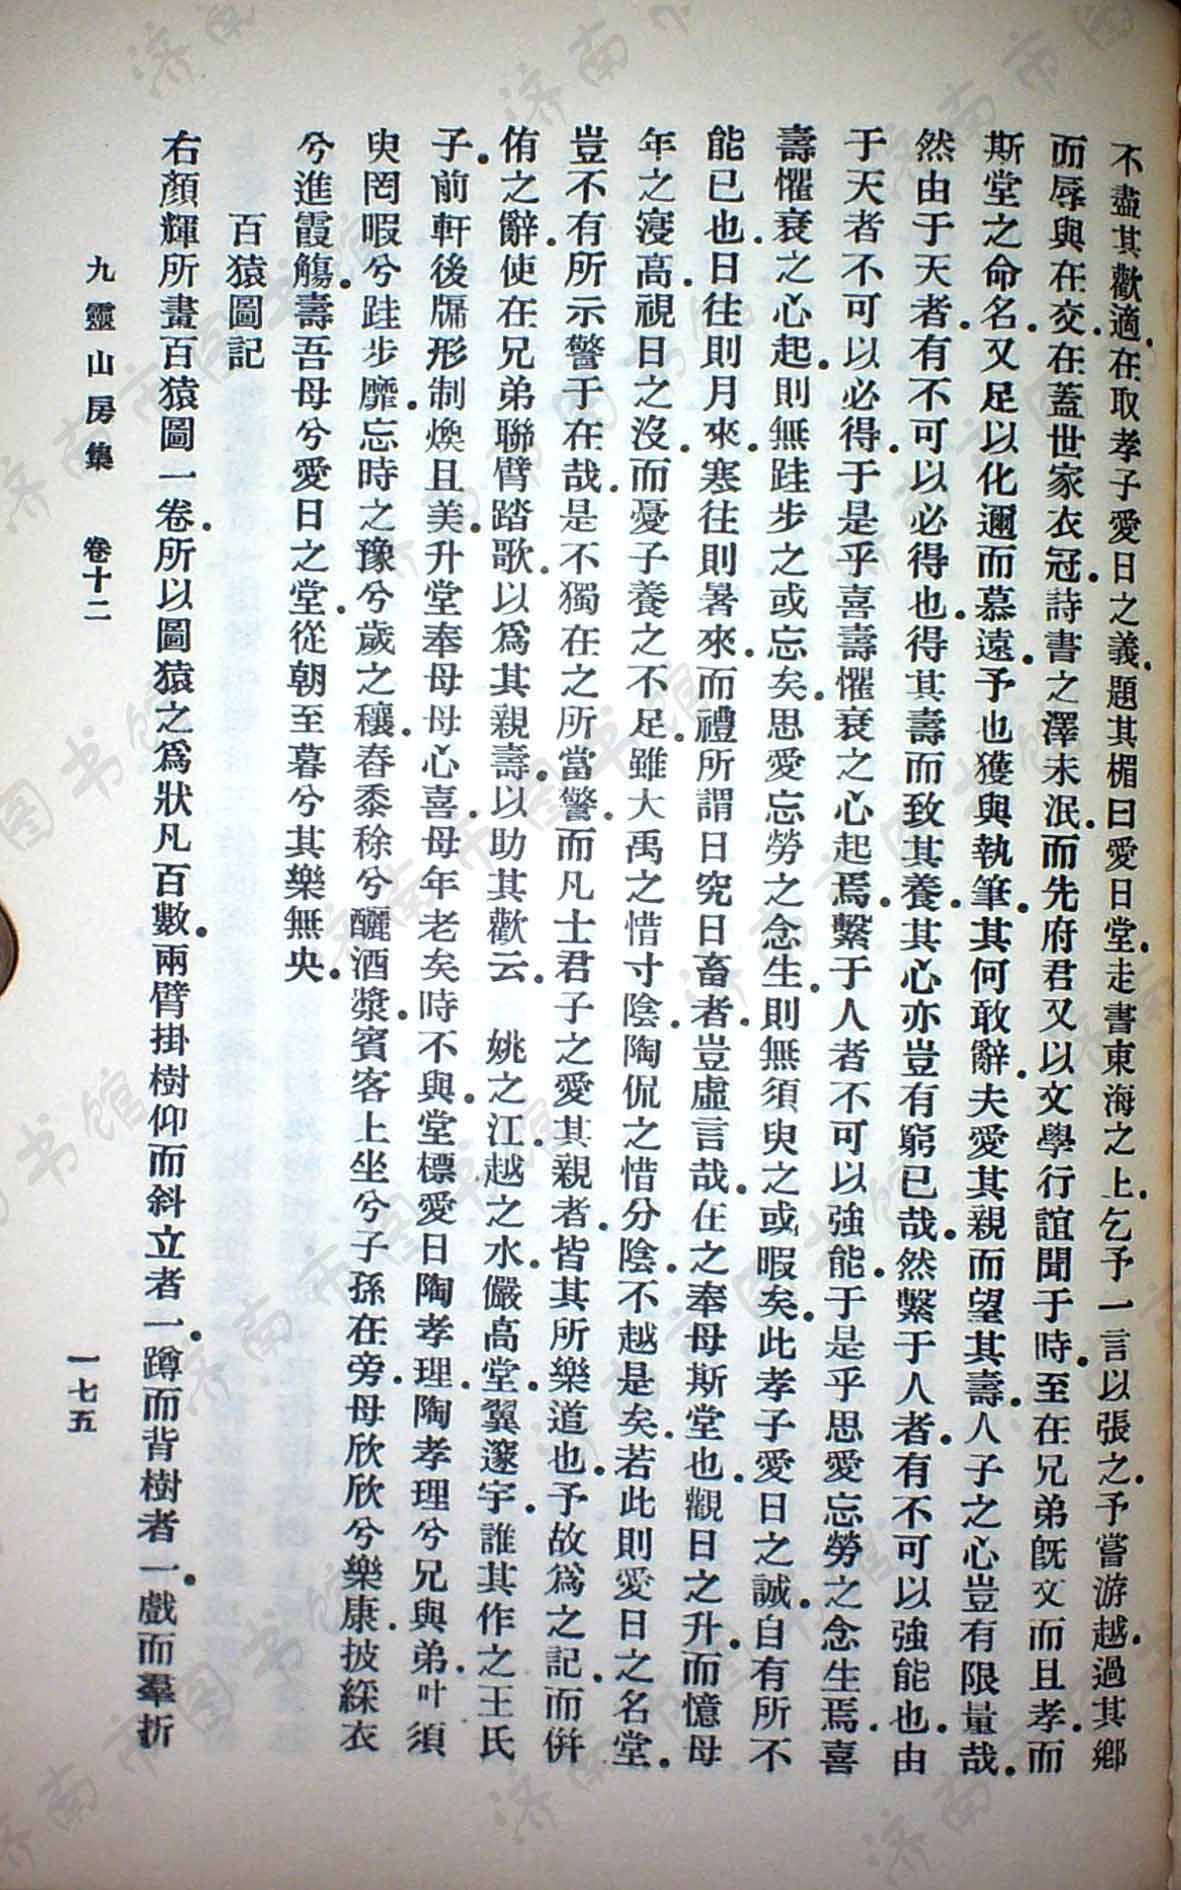 不盡其歡適.在取孝子愛日之義.題其楣曰愛日堂.走書東海之上.乞予一言以張之.予嘗游越.過其鄉
而辱與在交.在蓋世家衣冠.詩書之澤未泯.而先府君又以文學行誼聞于時.至在兄弟旣文而且孝.而
斯堂之命名.又足以化邇而慕遠.予也獲與執筆.其何敢辭.夫愛其親而望其壽.人子之心豈有限量哉.
然由于天者.有不可以必得也.得其壽而致其養.其心亦豈有窮已哉.然繫于人者.有不可以強能也.由
于天者不可以必得.于是乎喜壽懼衰之心起焉.繫于人者不可以強能.于是乎思愛忘勞之念生焉.喜
壽懼衰之心起.則無跬步之或忘矣.思愛忘勞之念生.則無須臾之或暇矣.此孝子愛日之誠.自有所不
能已也.日往則月來.寒往則暑來.而禮所謂日究日畜者.豈虛言哉.在之奉母斯堂也.觀日之升.而憶母
年之寖高.視日之沒.而憂子養之不足.雖大禹之惜寸陰.陶侃之惜分陰.不越是矣.若此則愛日之名堂.
豈不有所示警于在哉.是不獨在之所當警.而凡士君子之愛其親者.皆其所樂道也.予故爲之記.而併
侑之辭.使在兄弟聯臂踏歌.以爲其親壽.以助其歡云.　姚之江.越之水.儼高堂.翼邃宇.誰其作之王氏
子.前軒後牖形制煥且美.升堂奉母母心喜.母年老矣時不與.堂標愛日陶孝理.陶孝理兮兄與弟.叶須
臾罔暇兮跬步靡.忘時之豫兮歲之穰.舂黍稌兮釃酒漿.賓客上坐兮子孫在旁.母欣欣兮樂康.披綵衣
兮進霞觴.壽吾母兮愛日之堂.從朝至暮兮其樂無央.
百猿圖記
右顏輝所畫百猿圖一卷.所以圖猿之爲狀凡百數.兩臂掛樹仰而斜立者一.蹲而背樹者一.戲而羣折
九靈山房集　卷十二
一七五
济南市图书馆